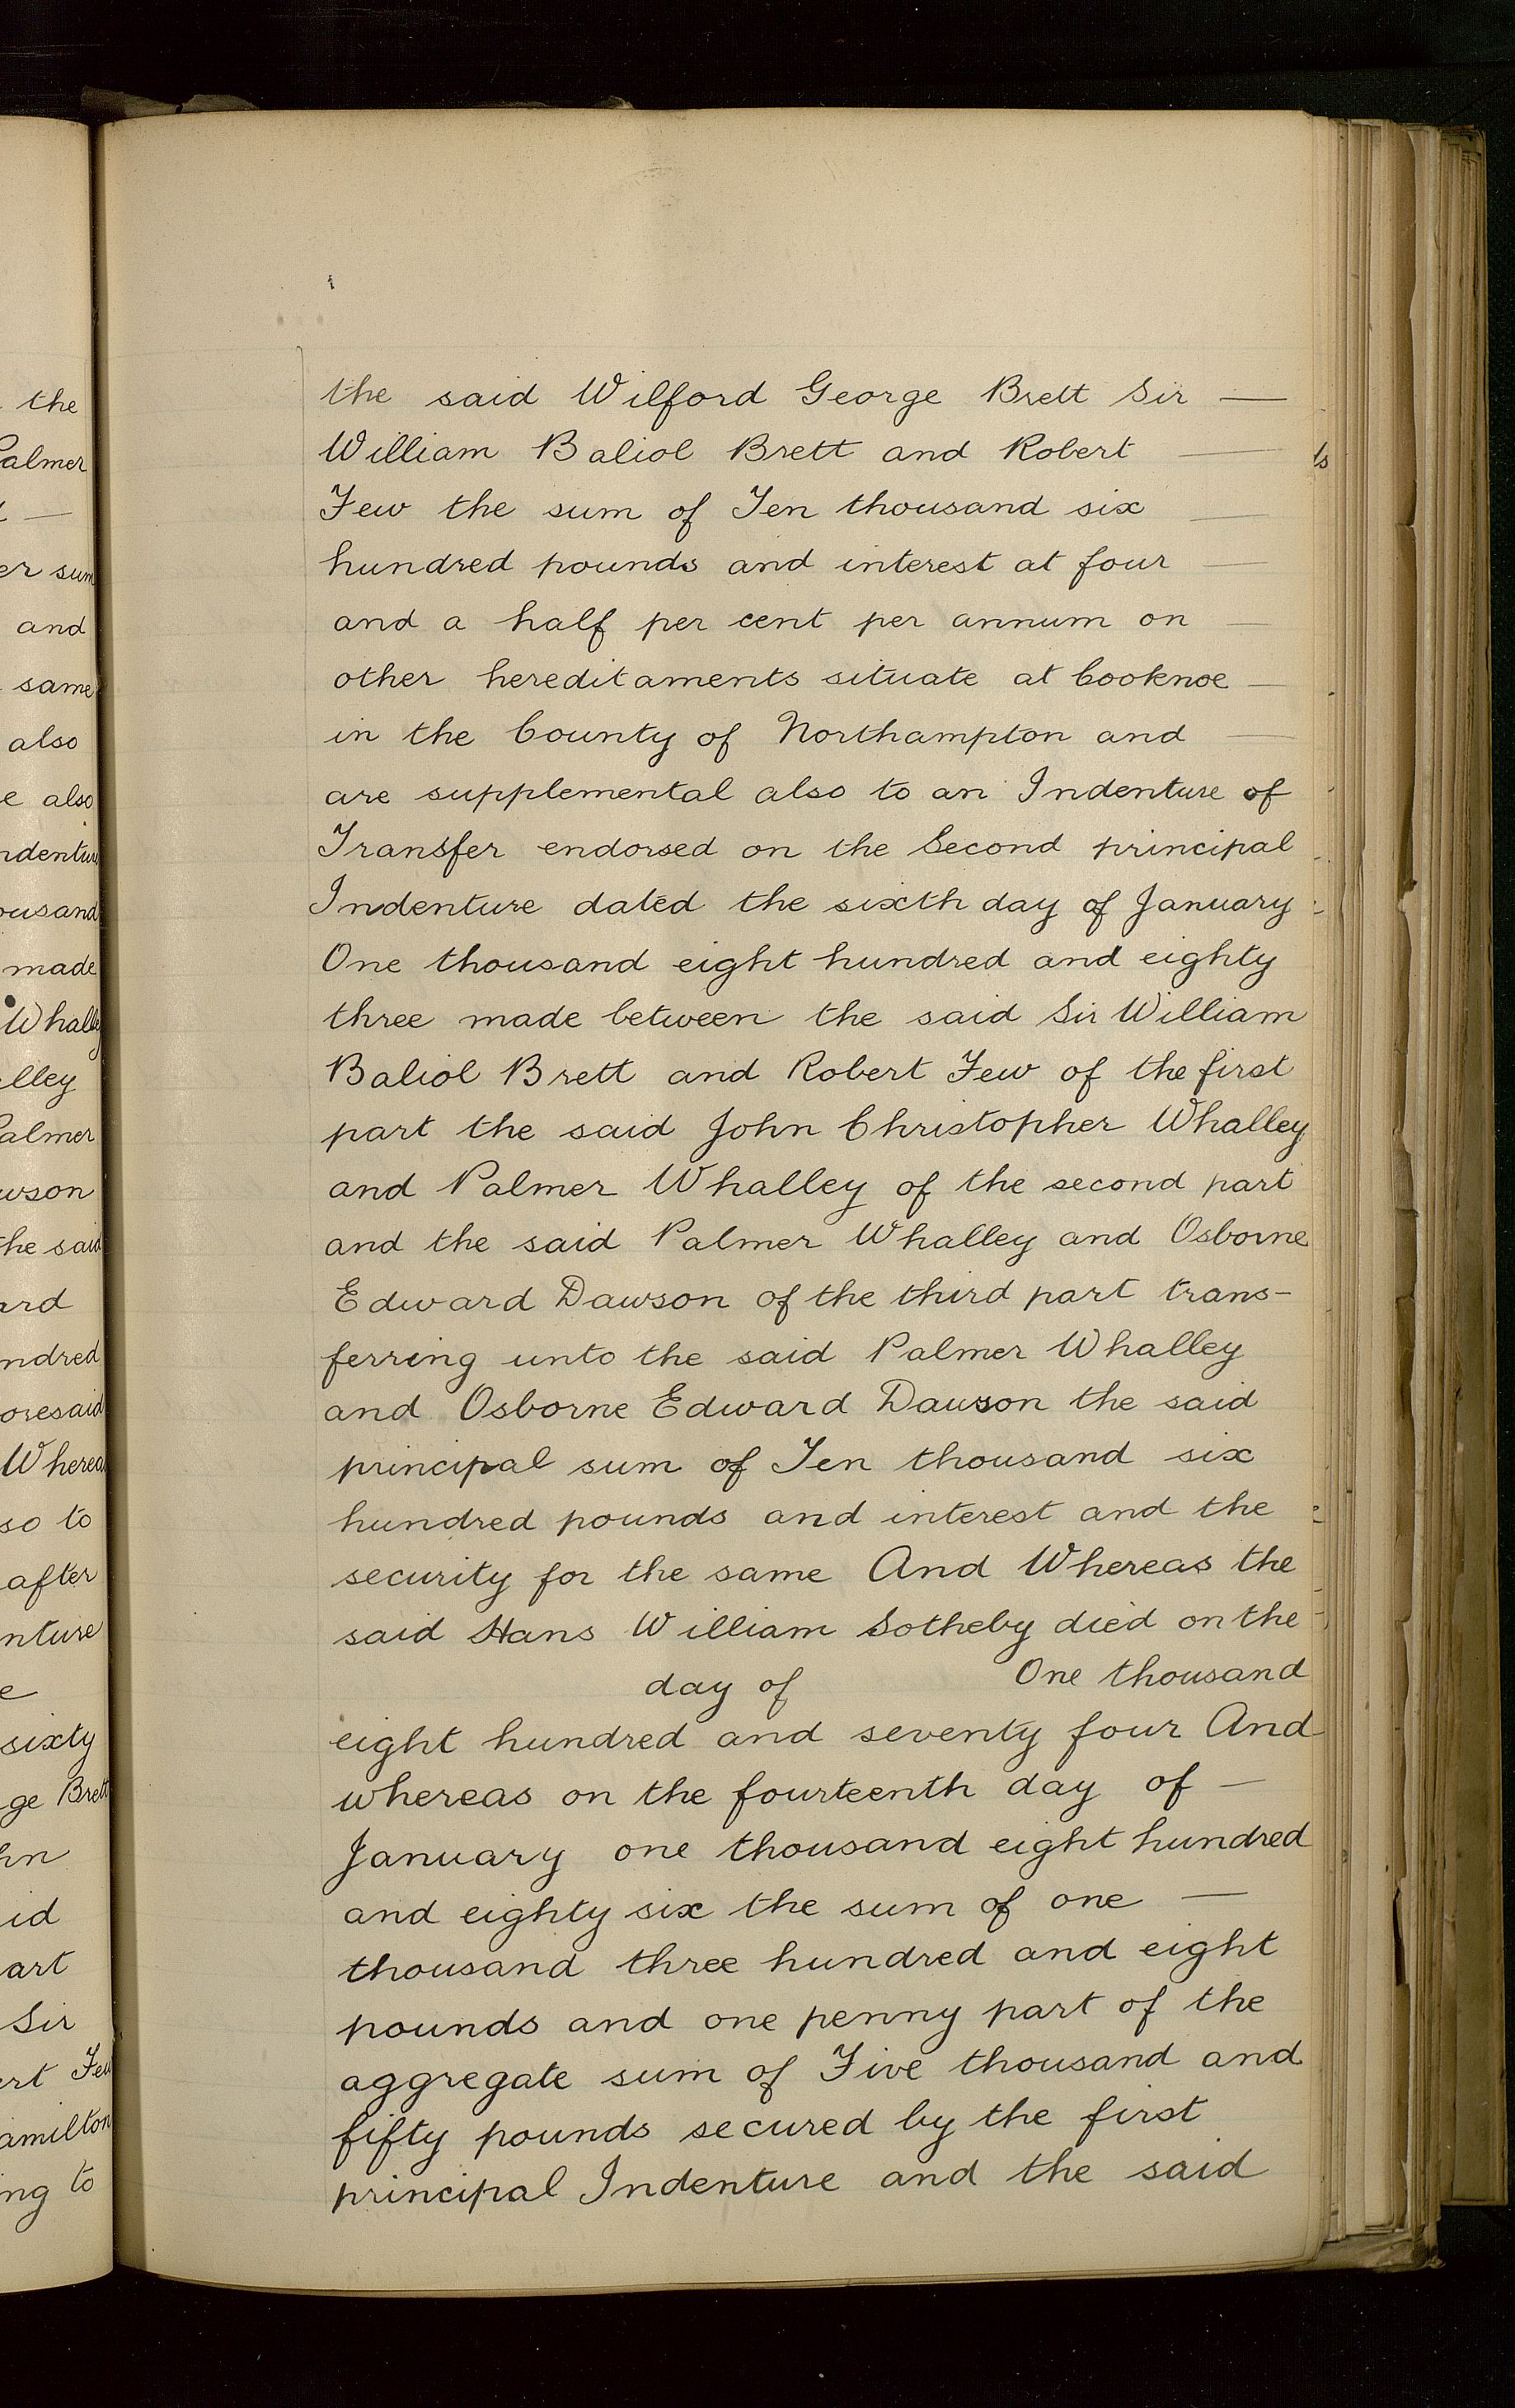 the said Wilford George Brett Sir —
William Baliol Brett and Robert —
Few the sum of Ten thousand six —
hundred pounds and interest at four —
and a half per cent per annum on —
other hereditaments situate at Cooknoe —
in the County of Northampton and —
are supplemental also to an Indenture of
Transfer endorsed on the Second principal
Indenture dated the sixth day of January
One thousand eight hundred and eighty
three made between the said Sir William
Baliol Brett and Robert Few of the first
part the said John Christopher Whalley
and Palmer Whalley of the second part
and the said Palmer Whalley and Osborne
Edward Dawson of the third part trans-
ferring unto the said Palmer Whalley
and Osborne Edward Dawson the said
principal sum of Ten thousand six
hundred pounds and interest and the
security for the same And Whereas the
said Hans William Sotheby died on the
day of One thousand
eight hundred and seventy four And
whereas on the fourteenth day of —
January one thousand eight hundred
and eighty six the sum of one —
thousand three hundred and eight
pounds and one penny part of the
aggregate sum of Five thousand and
fifty pounds secured by the first
principal Indenture and the said